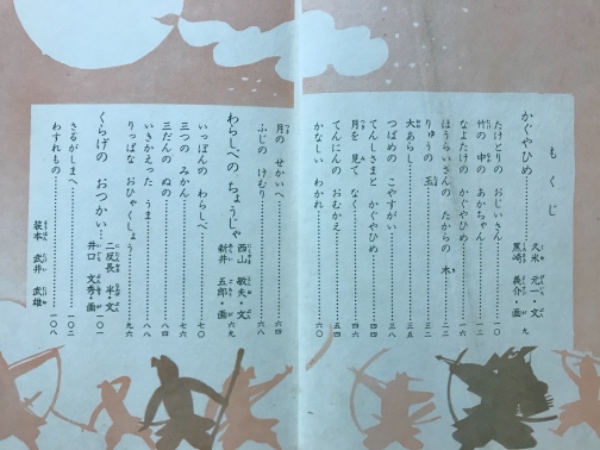 もくじ
かぐやひめ………久米 元一・文
黒崎 義介・画 九
たけとりの おじいさん………一〇
竹の 中の あかちゃん………一二
なよたけの かぐやひめ………一六
ほうらいさんの たからの 木………二三
りゅうの 玉………三二
大あらし………三五
つばめの こやすがい………三八
てんしさまと かぐやひめ………四四
月を 見て なく………四八
てんにんの おむかえ………五四
かなしい わかれ………六〇
月の せかいへ………六四
ふじの けむり………六八
わらしべの ちょうじゃ………西山 敏夫・文
新井 五郎・画 六九
いっぽんの わらしべ………七〇
三つの みかん………七六
三だんの ぬの………八四
いきかえった うま………八八
りっぱな おひゃくしょう………九六
くらげの おつかい………二反長 半・文
井口 文秀・画 一〇一
さるがしまへ………一〇二
わすれもの………一〇八
装本 武井 武雄